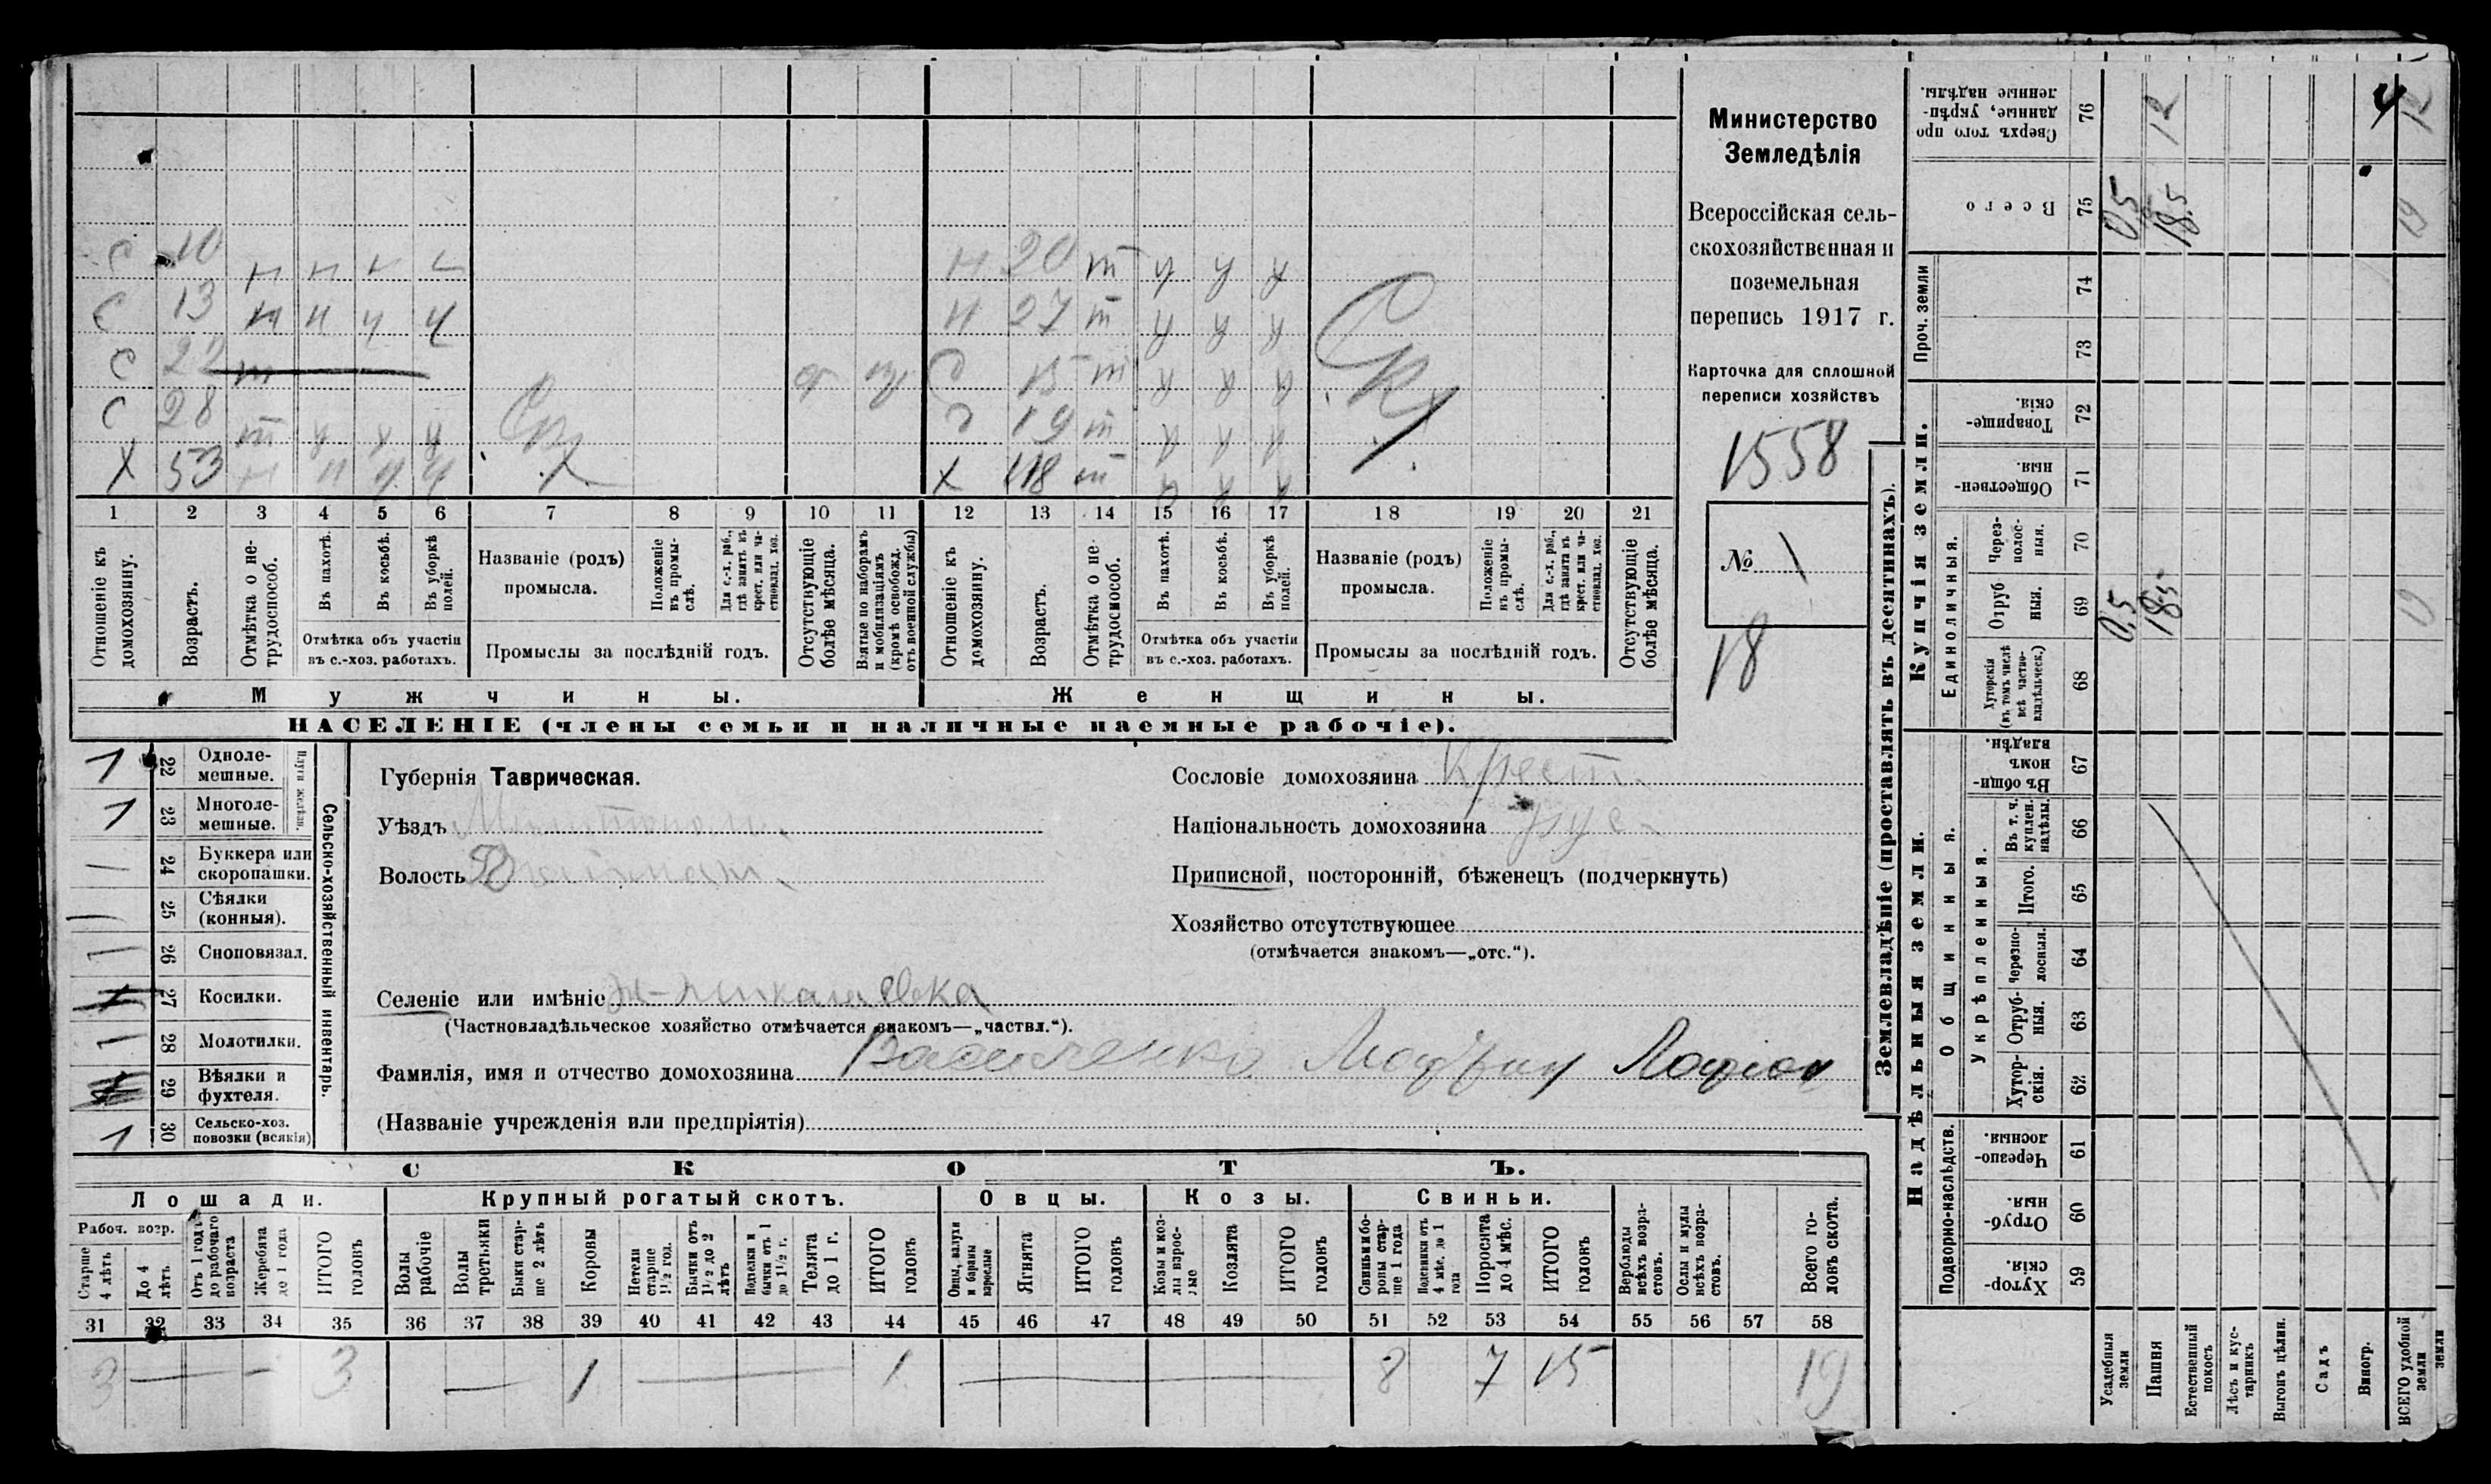 Министерство
Земледѣлія
Всероссійская сель-
скохозяйственная и
поземельная
перепись 1917 г.
Карточка для сплошной
переписи хозяйствъ
1558
№ 1
18
С 10 н н
С 13 н н ч ч
С 22 т
С 28 т
Х 53 н н
н 20 т
н 27 т
С 15 т
19 т
Х 48 т
1 2 3 4 5 6 7 8 9 10 11 12 13 14 15 16 17 18 19 20 21
Отношеніе къ домохозяину.
Возрастъ.
Отмѣтка о не-трудоспособ.
Въ пахотѣ.
Въ косьбѣ.
Въ уборкѣ полей.
Отмѣтка объ участіи въ с.-хоз. работахъ.
Названіе (родъ) промысла.
Положеніе въ промы-слѣ.
Для с.-х. раб., гдѣ занятъ въ крест. или ча-стновлад. хоз.
Промыслы за послѣдній годъ.
Отсутствующіе болѣе мѣсяца.
Взятые по наборамъ и мобилизаціямъ (кромѣ освобожд. отъ военной службы)
Отношеніе къ домохозяину.
Возрастъ.
Отмѣтка о не-трудоспособ.
Въ пахотѣ.
Въ косьбѣ.
Въ уборкѣ полей.
Отмѣтка объ участіи въ с.-хоз. работахъ.
Названіе (родъ) промысла.
Положеніе въ промы-слѣ.
Для с.-х. раб., гдѣ занятъ въ крест. или ча-стновлад. хоз.
Промыслы за послѣдній годъ.
Отсутствующіе болѣе мѣсяца.
Мужчины. Женщины.
НАСЕЛЕНІЕ (члены семьи и наличные наемные рабочіе).
Сельско-хозяйственный инвентарь.
Плуги желѣзн.
1 22 Одноле-мешные.
1 23 Многоле-мешные.
24 Буккера или скоропашки.
25 Сѣялки (конныя).
26 Сноповязал.
27 Косилки.
28 Молотилки.
29 Вѣялки и фухтеля.
1 30 Сельско-хоз. повозки (всякія)
Губернія Таврическая.
Уѣздъ Мелитопол.
Волость
Селеніе или имѣніе николаевка
(Частновладѣльческое хозяйство отмѣчается знакомъ—„частвл.“).
Фамилія, имя и отчество домохозяина Василенко
(Названіе учрежденія или предпріятія)
Сословіе домохозяина Крест.
Національность домохозяина рус.
Приписной, посторонній, бѣженецъ (подчеркнуть)
Хозяйство отсутствующее
(отмѣчается знакомъ—„отс.“).
СКОТЪ.
Лошади. Крупный рогатый скотъ. Овцы. Козы. Свиньи.
Рабоч. возр.
Старше 4 лѣтъ
До 4 лѣтъ
Отъ 1 года до рабочаго возраста
Жеребята до 1 года
ИТОГО головъ
Волы рабочіе
Волы третьяки
Быки стар-ше 2 лѣтъ
Коровы
Нетели старше 1½ год.
Бычки отъ 1½ до 2 лѣтъ
Подтелки и бычки отъ 1 до 1½ г.
Телята до 1 г.
ИТОГО головъ
Овцы, валухи и бараны взрослые
Ягнята
ИТОГО головъ
Козы и коз-лы взрос-лые
Козлята
ИТОГО головъ
Свиньи и бо-ровы стар-ше 1 года
Подсвинки отъ 4 мѣс. до 1 года
Поросята до 4 мѣс.
ИТОГО головъ
Верблюды всѣхъ возра-стовъ.
Ослы и мулы всѣхъ возра-стовъ.
Всего го-ловъ скота.
31 32 33 34 35 36 37 38 39 40 41 42 43 44 45 46 47 48 49 50 51 52 53 54 55 56 57 58
3 3 1 1 8 7 15 19
Землевладѣніе (проставлять въ десятинахъ).
Купчія земли.
Надѣльныя земли.
Сверхъ того про-данные, укрѣп-ленные надѣлы. 76 12 12
Всего 75 0,5 18,5 19
Проч. земли 74
73
Товарище-скія. 72
Обществен-ныя. 71
Единоличныя.
Через-полос-ныя. 70
Отруб-ныя. 69 0,5 18,5 19
Хуторскія (въ томъ числѣ всѣ частно-владѣльческ.) 68
Общинныя.
Въ общин-номъ владѣн. 67
Укрѣпленныя.
Въ т. ч. куплен. надѣлы. 66
Итого. 65
Черезпо-лосныя. 64
Отруб-ныя. 63
Хутор-скія. 62
Подворно-наслѣдств.
Черезпо-лосныя. 61
Отруб-ныя. 60
Хутор-скія. 59
Усадебныя земли
Пашня
Естественный покосъ
Лѣсъ и кус-тарникъ
Выгонъ цѣлин.
Садъ
Виногр.
ВСЕГО удобной земли
земли
4